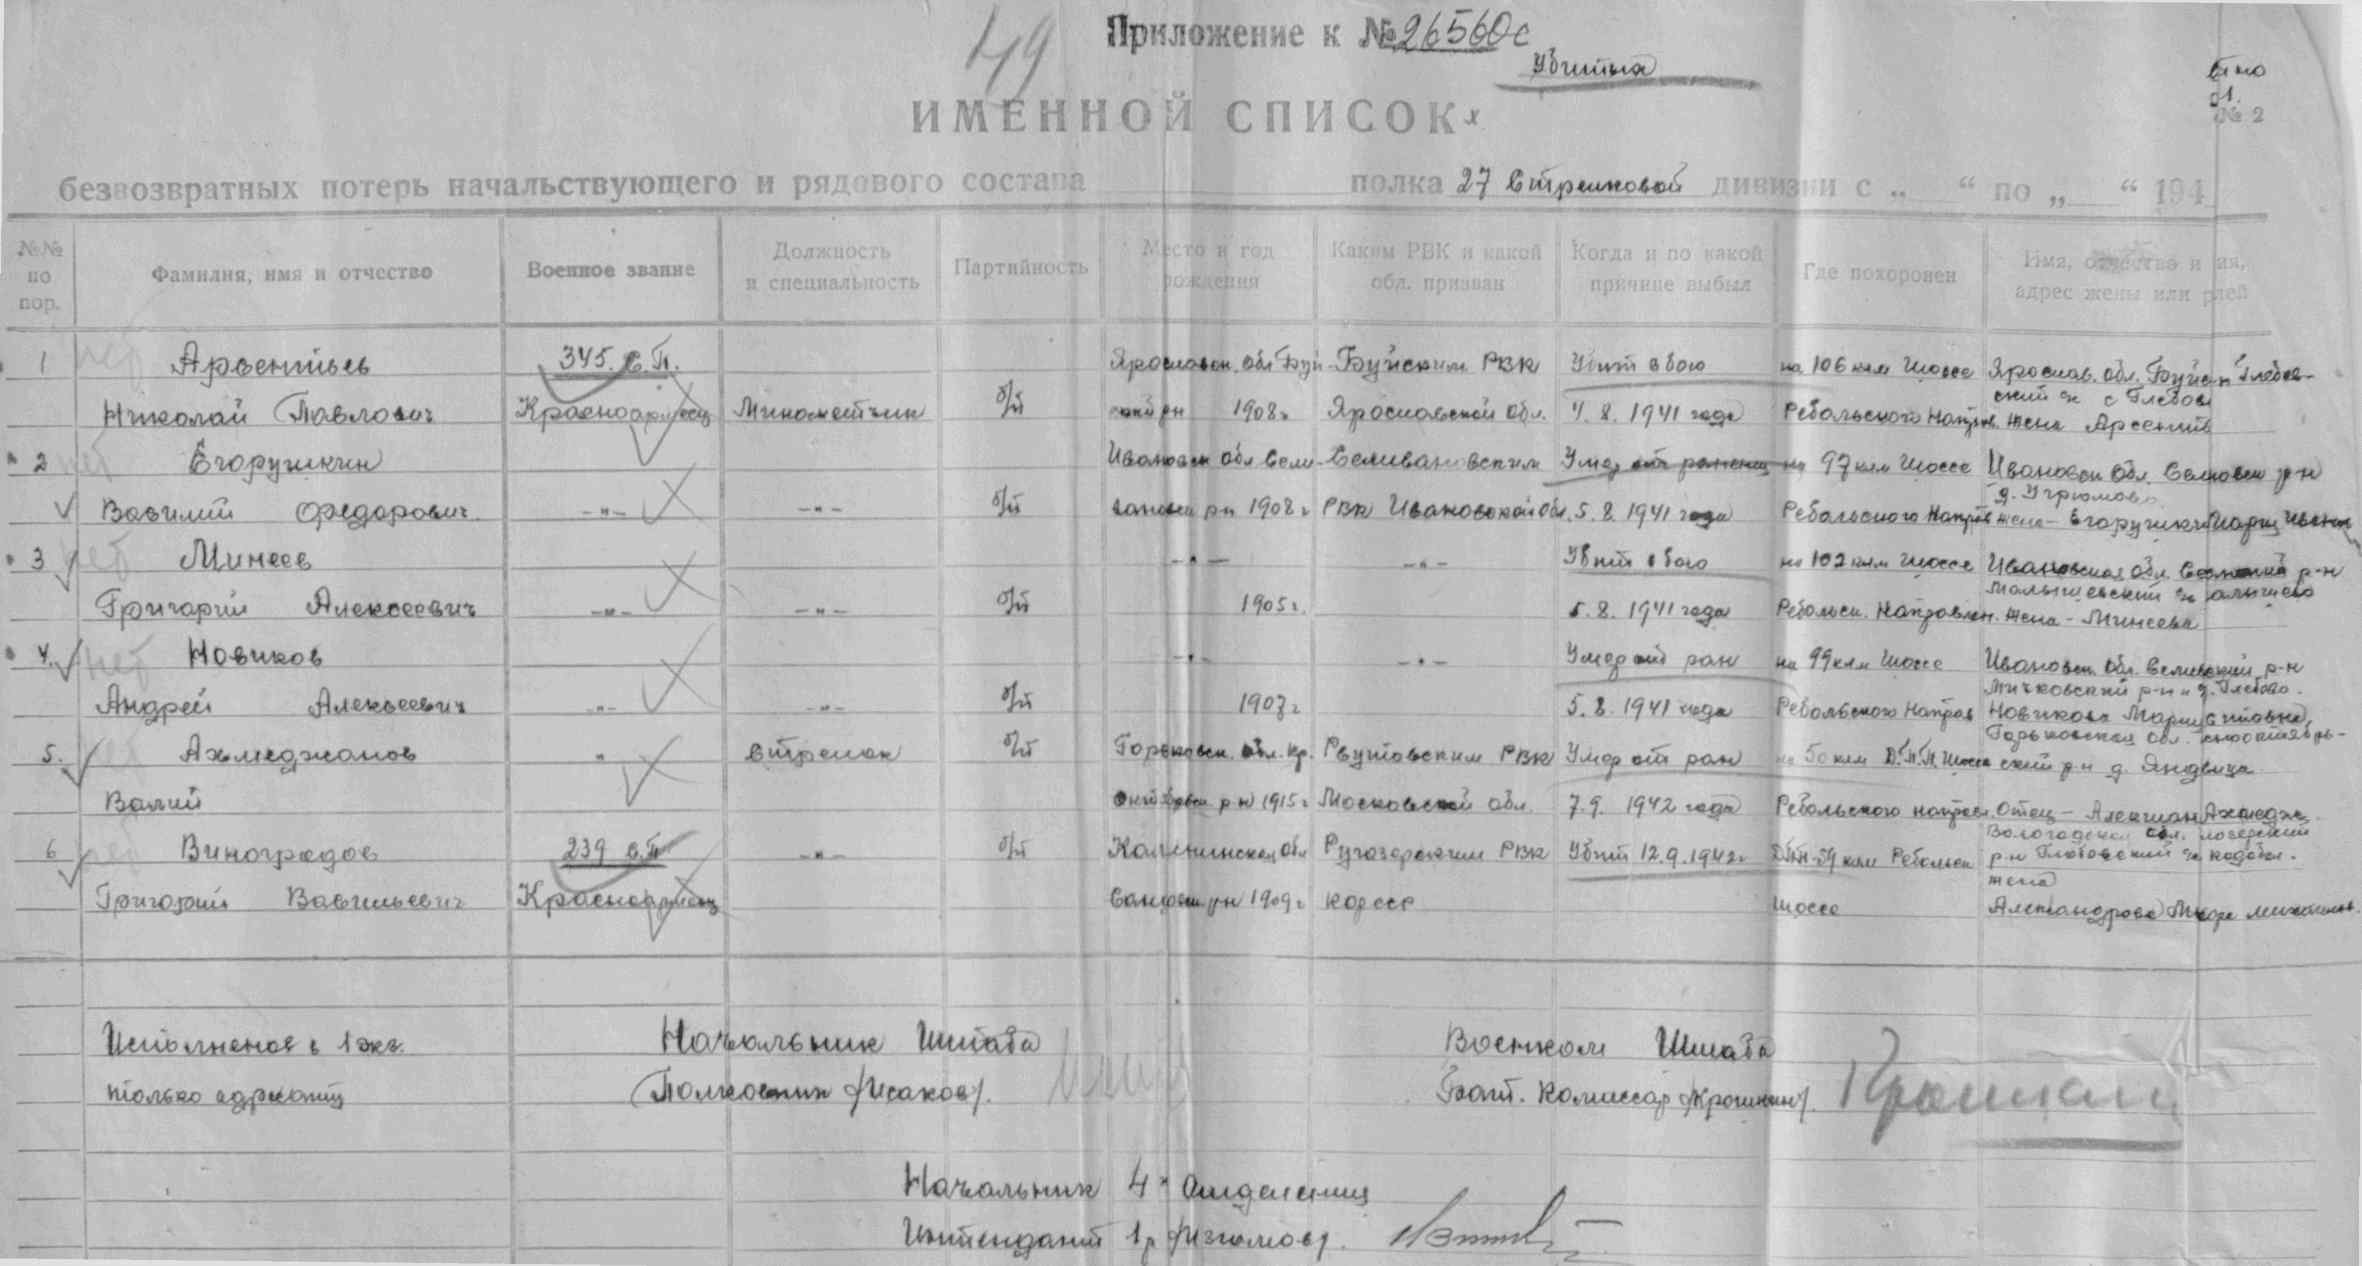 49
Приложение к № 26560с
Убитыя
ИМЕННОЙ СПИСОК х
№ 2
безвозвратных потерь начальствующего и рядового состава полка 27 Стрелковой дивизии с „ “ по „ “ 194
№№ по пор. Фамилия, имя и отчество Военное звание Должность и специальность Партийность Место и год рождения Каким РВК и какой обл. призван Когда и по какой причине выбыл Где похоронен Имя, отчество и адрес жены или
1 нет Арсентьев 345. с.п. Ярославск. обл Буй Буйским РВК Убит в бою на 106 клм шоссе Ярослав. обл. Буйск
ский с Глебов
Николай Павлович Красноармеец Минометчик б/п ский рн 1908г Ярославской обл. 4. 8. 1941 года Ребольского Направ. жена Арсентьев
2 нет Егорушкин Ивановск обл Сели Селивановским Умер от ранения на 97 клм шоссе Ивановск обл. р-н
д. Угрюмово
Василий Федорович -"- -"- б/п вановск рн 1908г РВК Ивановской обл. 5. 8. 1941 года Ребольского Направ жена - Егорушкин Мария Иван
3 нет Минеев -"- -"- Убит в бою на 102 клм шоссе Ивановская обл. р-н
Малышевский
Григорий Алексеевич -"- -"- б/п 1905г. 5. 8. 1941 года Ребольск. Направлен. жена - Минеева
4. нет Новиков -"- -"- Умер от ран на 99 клм шоссе Ивановск. обл. р-н
Мичковский р-н д. Глебово.
Андрей Алексеевич -"- -"- б/п 1907г 5. 8. 1941 года Ребольского Направ Новикова Мария
Горьковская обл.
5. нет Ахмеджанов " стрелок б/п Горьковск. обл. Кр. Реутовским РВК Умер от ран на 50 клм шоссе ский р-н д. Яндвища
Валий октябрьск р-н 1915г Московской обл. 7. 9. 1942 года Ребольского направ. Отец - Ахмедж
Вологодская обл.
6 нет Виноградов 239 с.п. -"- б/п Калининская обл Ругозерским РВК Убит 12.9.1942г клм Ребольск р-н
жена
Григорий Васильевич Красноармеец рн 1909г кфсср шоссе Александрова
Исполненов в 1 экз. Начальник Штаба Военком Штаба
только адресату Полковник /Исаков/. Бат. Комиссар /Крошкин/. Крошкин
Начальник 4 отделения
Интендант 1 р /Изюмов/.